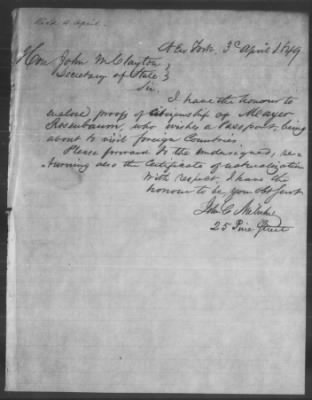 Recd 4 April.
New York. 3d April 1849
Hon John M. Clayton
Secretary of State
Sir.
I have the honour to
enclose proofs of Citizenship of Meayer
Rosenbaum, who wishes a Passport, being
about to visit foreign Countries.
Please forward to the undersigned, re-
turning also the Certificate of naturalization
With respect, I have the
honour to be, your Obt Servt
John C
25 Pine Street